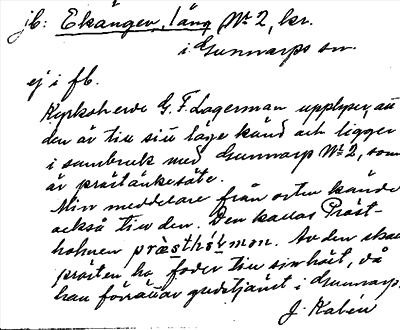 jb: Ekängen, läng Nr 2, kr.
i Gunnarps sn.
ej i fb.
Kyrkoherde G. F. Lagerman upplyser, att
den är till sitt läge känd och ligger
i sambruk med Gunnarp Nr 2, som
är prästänkesäte.
Min meddelare från orten kände
också till den. Den kallas Präst-
holmen præsthólmon. Av den skall
prästen ha foder till sin häst, då
han förrättar gudstjänst i Gunnarp.
J. Kalén